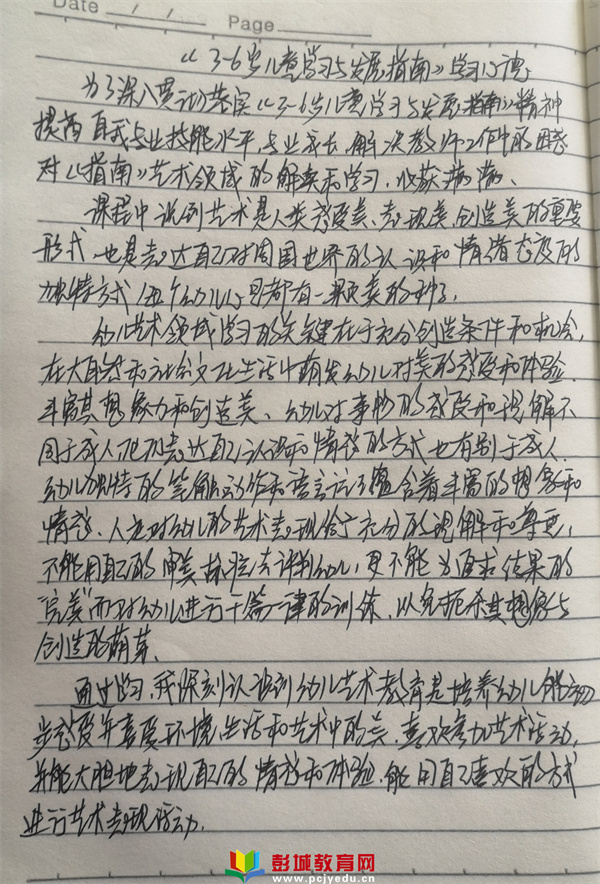 Date / / Page
《3-6岁儿童学习与发展指南》学习心得
为了深入贯彻落实《3-6岁儿童学习与发展指南》精神
提高自我专业技能水平,专业成长,解决教师工作中的困惑
对《指南》艺术领域的解读和学习,收获满满、
课程中说到艺术是人类感受美、表现美、创造美的重要
形式,也是表达自己对周围世界的认识和情绪态度的
独特方式,每个幼儿心里都有一颗美的种子。
幼儿艺术领域学习的关键在于充分创造条件和机会,
在大自然和社会文化生活中萌发幼儿对美的感受和体验.
丰富其想象力和创造美、幼儿对事物的感受和理解不
同于成人,他们表达自己认识和情感的方式也有别于成人.
幼儿独特的笔触动作和语言往往蕴含着丰富的想象和
情感、对幼儿的艺术表现给予充分的理解和尊重,
不能用自己的审美标准去评判幼儿,更不能为追求结果的
"完美"而对幼儿进行千篇一律的训练、以免扼杀其想象与
创造的萌芽、
通过学习,我深刻认识到幼儿艺术教育是培养幼儿能初
步感受并喜爱环境、生活和艺术中的美、喜欢参加艺术活动,
并能大胆地表现自己的情感和体验、能用自己喜欢的方式
进行艺术表现活动.
彭城教育网
www.pcjyedu.cn